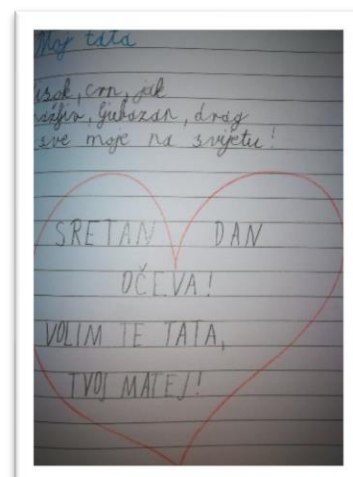 Moj tata
isok, crn, jak
ažljiv, ljubazan, drag
sve moje na svijetu!
SRETAN DAN
OČEVA!
VOLIM TE TATA,
TVOJ MATEJ!